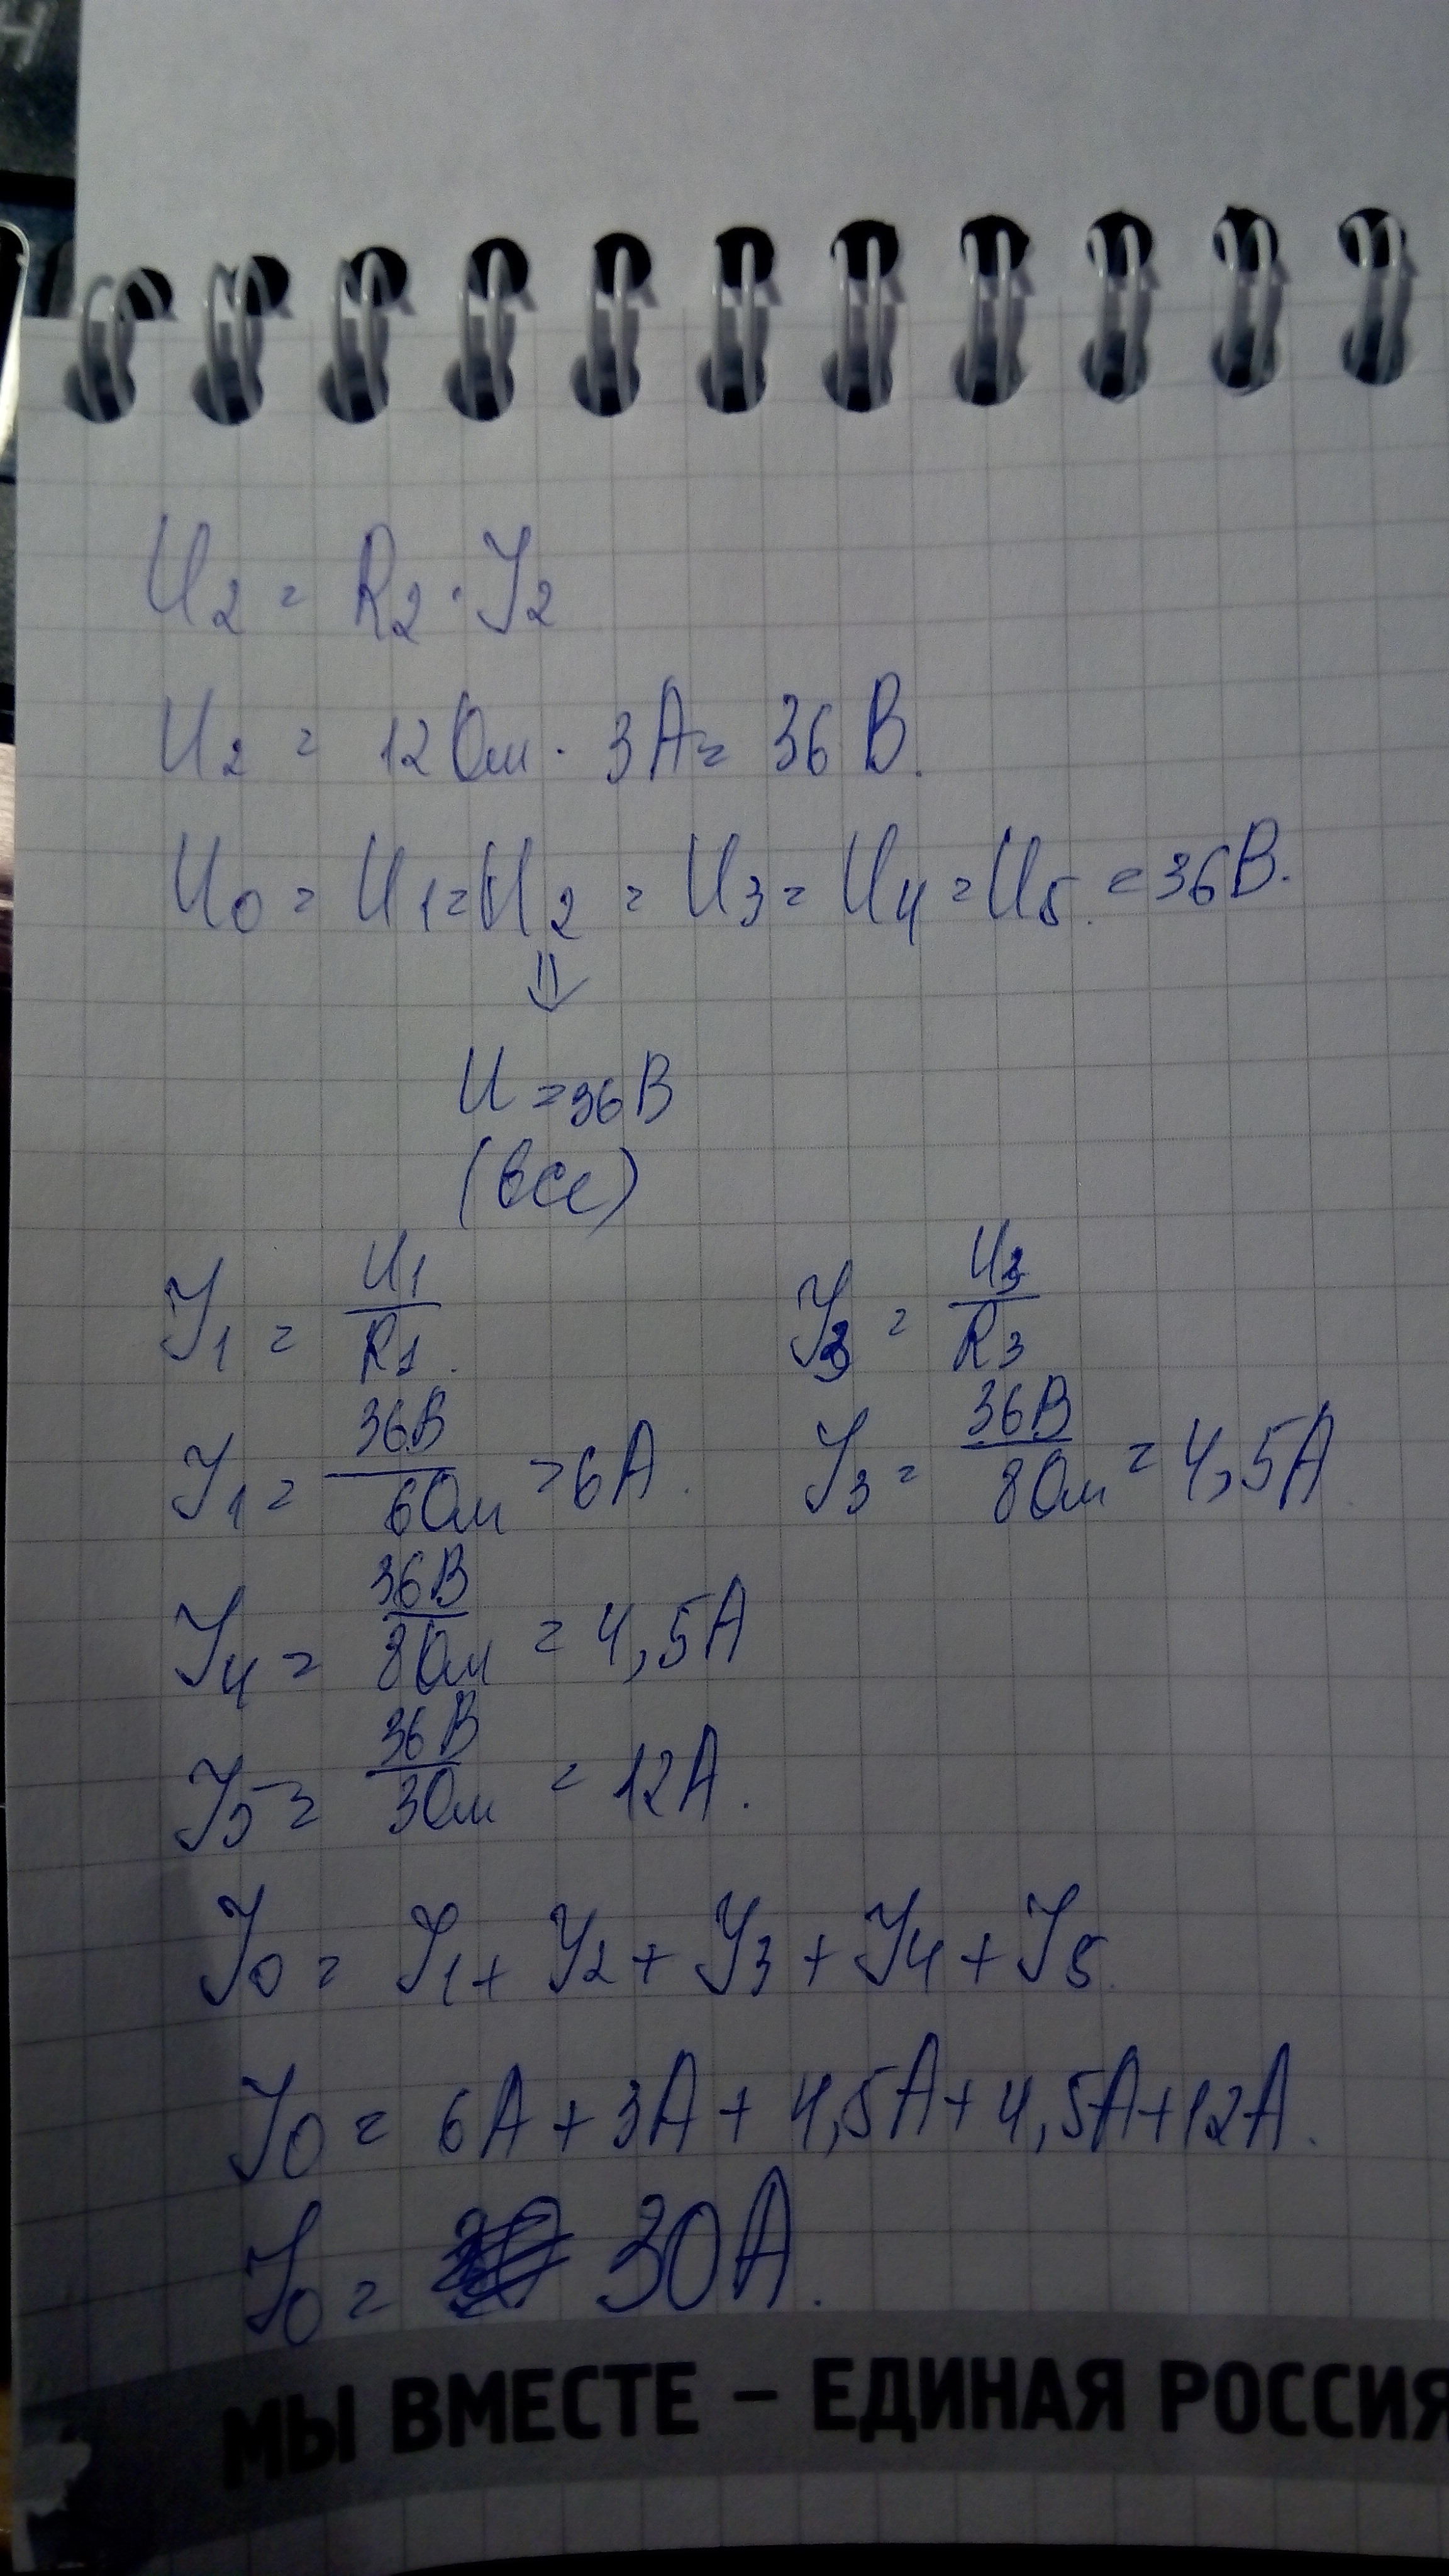 U2 = R2 · I2
U2 = 12 Ом · 3А = 36 В.
U0 = U1 = U2 = U3 = U4 = U5. = 36В.
⇓
U = 36В
(все)
I1 = U1/R1. I3 = U3/R3
I1 = 36В/6Ом = 6А. I3 = 36В/8Ом = 4,5А.
I4 = 36В/8Ом = 4,5А
I5 = 36В/3Ом = 12А.
I0 = I1 + I2 + I3 + I4 + I5.
I0 = 6А + 3А + 4,5А + 4,5А + 12А.
I0 = 30А.
МЫ ВМЕСТЕ – ЕДИНАЯ РОССИЯ